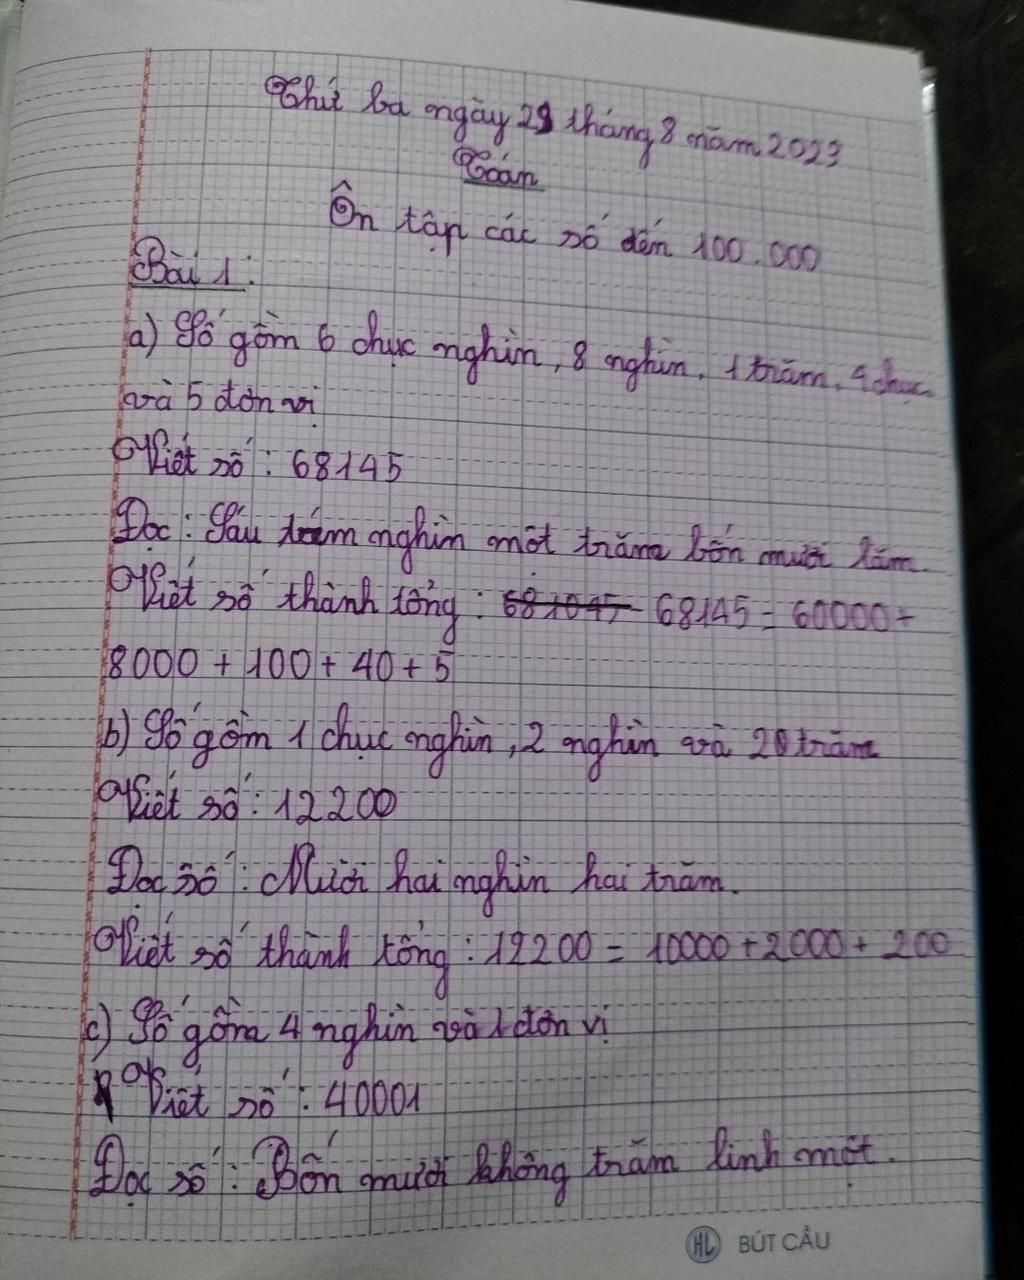 Thứ ba ngày 29 tháng 8 năm 2023
Toán
Ôn tập các số đến 100.000
Bài 1:
a) Số gồm 6 chục nghìn, 8 nghìn, 1 trăm, 4 chục
và 5 đơn vị
Viết số: 68145
Đọc: Sáu tám nghìn một trăm bốn mươi lăm
Viết số thành tổng: 681045 68145 = 60000+
8000 + 100 + 40 + 5
b) Số gồm 1 chục nghìn, 2 nghìn và 20 trăm
Viết số: 12200
Đọc số: Mười hai nghìn hai trăm.
Viết số thành tổng: 12200 = 10000 + 2000 + 200
c) Số gồm 4 nghìn và 1 đơn vị
Viết số: 40001
Đọc số: Bốn mươi không trăm linh một.
HL BÚT CẦU